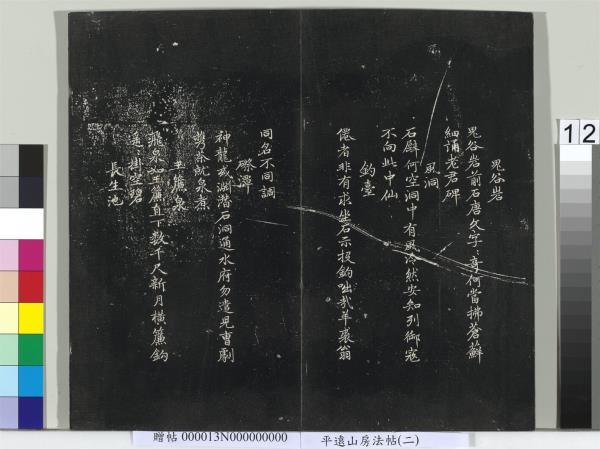 鬼谷岩
鬼谷岩前石唐久字專何當拂蒼蘚
細誦老君碑
風洞
石廦何空洞中有風泠然安知列御寇
不向此中仙
釣臺
僊者非有求坐石示投鈎咄哉羊裘翁
同名不同調
磜潭
神龍或淵潛石洞通水府勿遣見曹劇
就泉煮
簾泉
飛泉如玉簾直下數千尺新月橫簾鈎
遙掛空碧
長生池
12
贈帖 000013N000000000 平遠山房法帖(二)